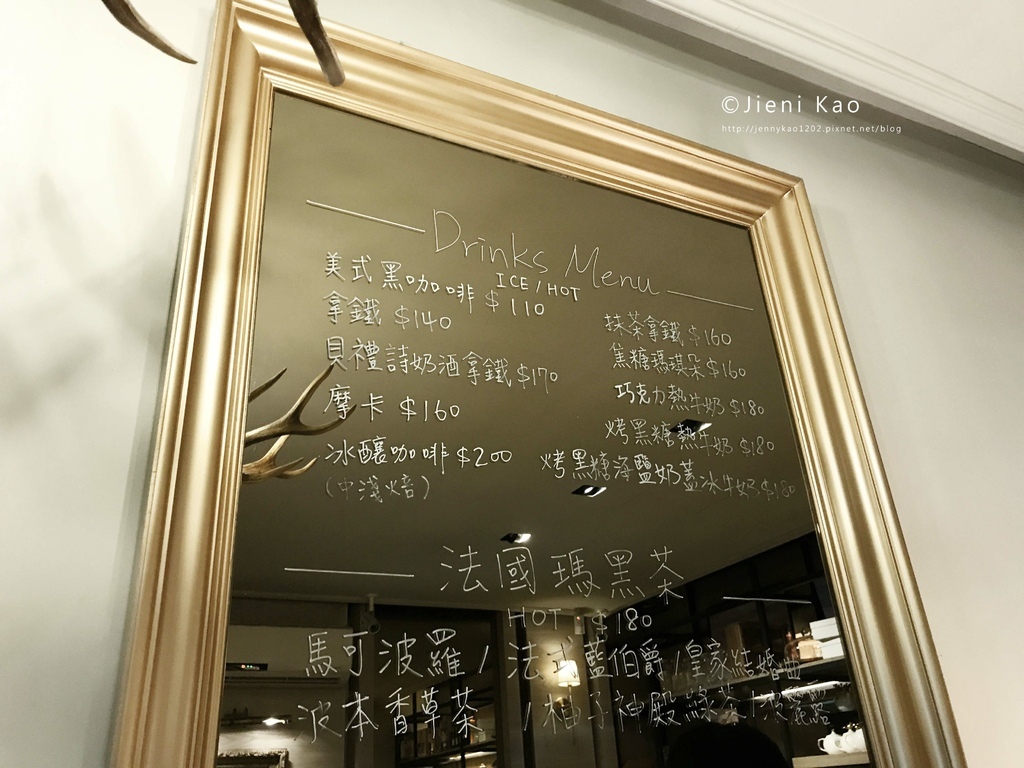 ©Jieni Kao
http://jennykao1202.pixnet.net/blog
Drinks Menu
ICE/HOT
美式黑咖啡 $110
拿鐵 $140
貝禮詩奶酒拿鐵 $170
摩卡 $160
冰釀咖啡 $200
(中淺焙)
抹茶拿鐵 $160
焦糖瑪琪朵 $160
巧克力熱牛奶 $180
烤黑糖熱牛奶 $180
烤黑糖海鹽奶蓋冰牛奶 $180
法國瑪黑茶
HOT $180
馬可波羅 / 法式藍伯爵 / 皇家結婚曲
波本香草茶 / 柚子神殿綠茶 /